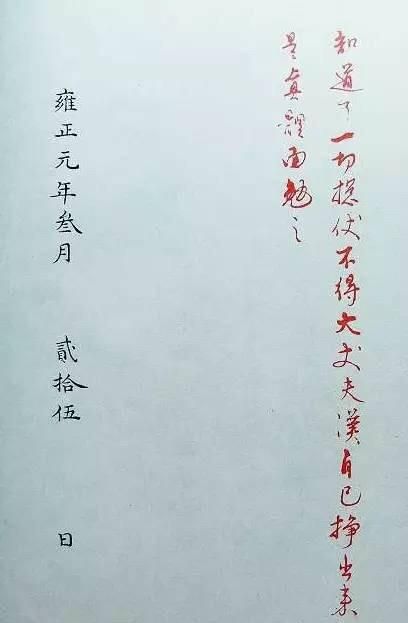 知道了一切揔仗不得大丈夫漢自己掙出来
是真體面勉之
雍正元年叁月 貳拾伍 日